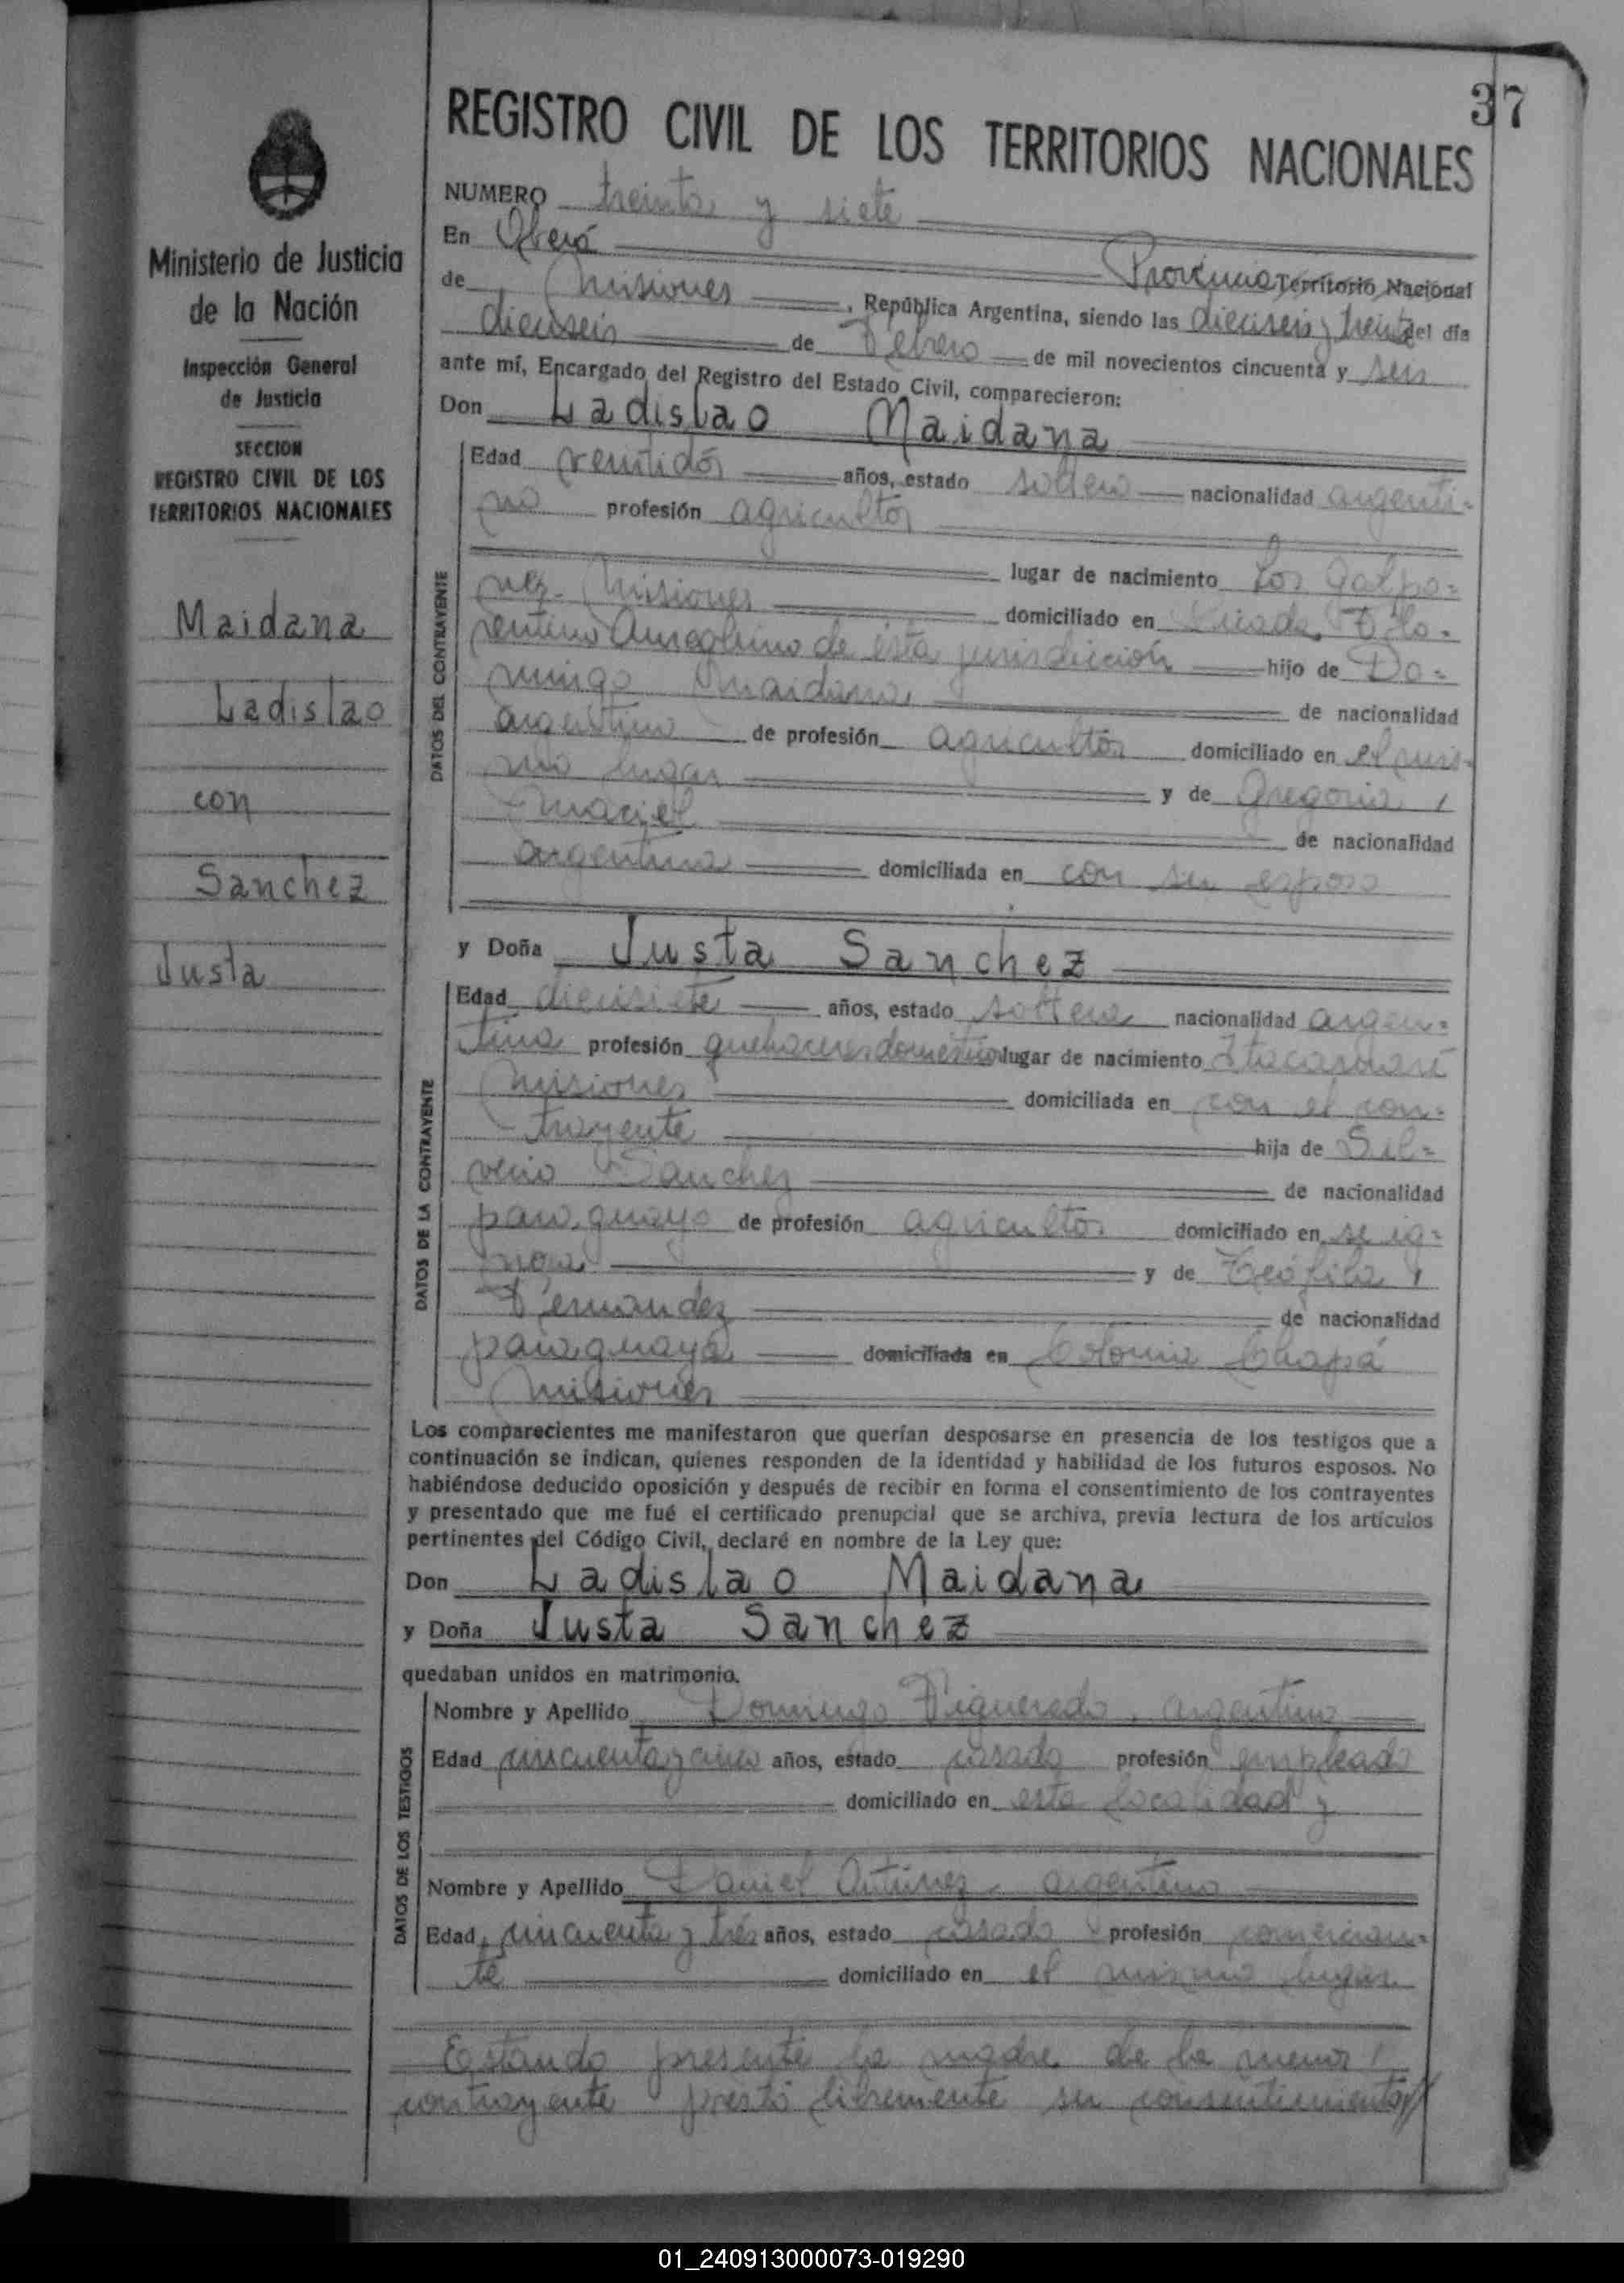 37
REGISTRO CIVIL DE LOS TERRITORIOS NACIONALES
Ministerio de Justicia
de la Nación
Inspección General
de Justicia
SECCION
REGISTRO CIVIL DE LOS
TERRITORIOS NACIONALES
Maidana
Ladislao
con
Sanchez
Justa
NUMERO treinta y siete
En Oberá Provincia Territorio Nacional
de Misiones, República Argentina, siendo las dieciseis y treinta del día
dieciseis de Febrero de mil novecientos cincuenta y seis
ante mí, Encargado del Registro del Estado Civil, comparecieron:
Don Ladislao Maidana
DATOS DEL CONTRAYENTE
Edad veintidós años, estado soltero nacionalidad argenti=
no profesión agricultor
lugar de nacimiento Los Galpo=
nes- Misiones domiciliado en Picada
de ésta jurisdicción hijo de Do=
mingo Maidana de nacionalidad
argentino de profesión agricultor domiciliado en el mis=
mo lugar y de Gregoria
Maciel de nacionalidad
argentina domiciliada en con su esposo
y Doña Justa Sanchez
DATOS DE LA CONTRAYENTE
Edad diecisiete años, estado soltera nacionalidad argen=
tina profesión quehaceres domésticos lugar de nacimiento Itacaruaré
Misiones domiciliada en con el con=
trayente hija de Sil=
verio Sanchez de nacionalidad
paraguayo de profesión agricultor domiciliado en se ig=
nora y de Teófila
Fernandez de nacionalidad
paraguaya domiciliada en Colonia Chapá
Misiones
Los comparecientes me manifestaron que querían desposarse en presencia de los testigos que a
continuación se indican, quienes responden de la identidad y habilidad de los futuros esposos. No
habiéndose deducido oposición y después de recibir en forma el consentimiento de los contrayentes
y presentado que me fué el certificado prenupcial que se archiva, previa lectura de los artículos
pertinentes del Código Civil, declaré en nombre de la Ley que:
Don Ladislao Maidana
y Doña Justa Sanchez
quedaban unidos en matrimonio.
DATOS DE LOS TESTIGOS
Nombre y Apellido Domingo Figueredo, argentino
Edad cincuenta y cinco años, estado casado profesión empleado
domiciliado en esta localidad y
Nombre y Apellido Daniel Antúnez, argentino
Edad cincuenta y trés años, estado casado profesión comercian=
te domiciliado en el mismo lugar
Estando presente la madre de la menor
contrayente prestó libremente su consentimiento
01_240913000073-019290